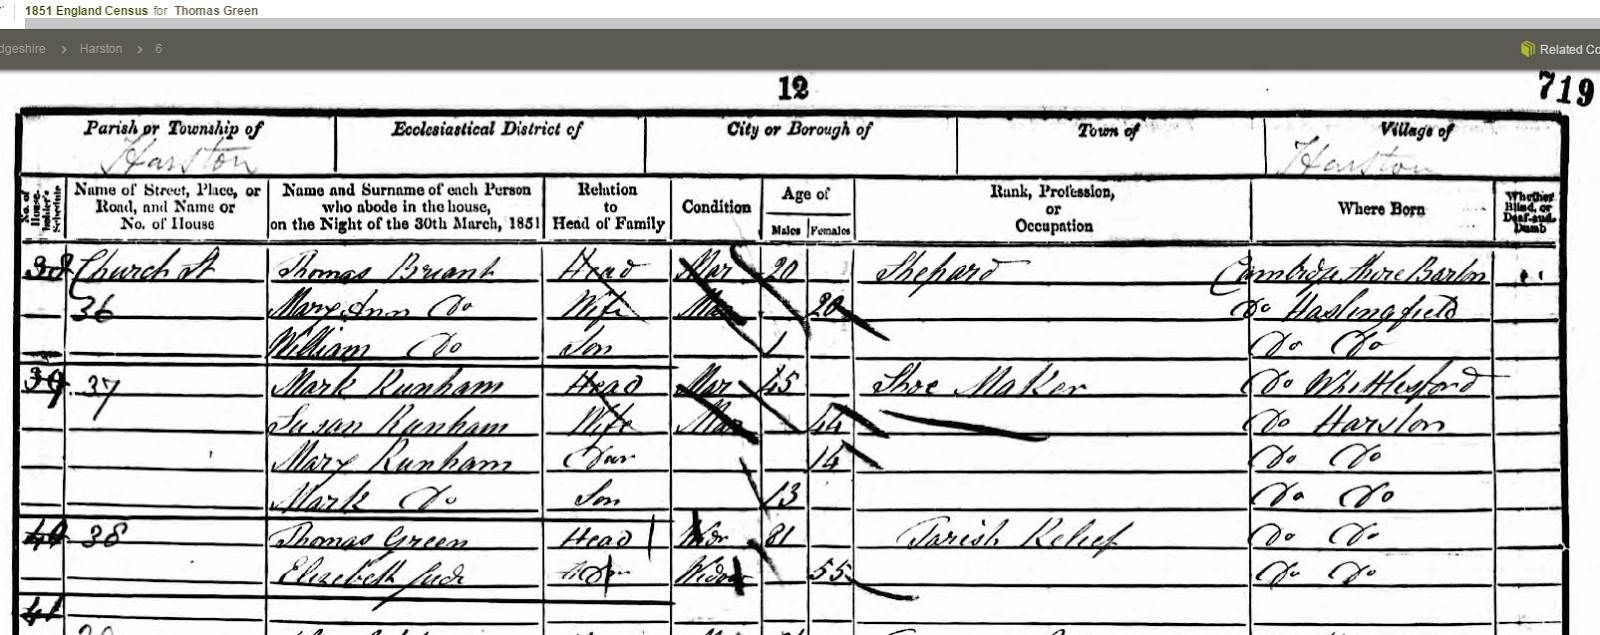 1851 England Census for Thomas Green
dgeshire > Harston > 6
Related Co
12
719
Parish or Township of
Harston
Ecclesiastical District of
City or Borough of
Town of
Village of
Harston
No. of House-holder's Schedule
Name of Street, Place, or Road, and Name or No. of House
Name and Surname of each Person who abode in the house, on the Night of the 30th March, 1851
Relation to Head of Family
Condition
Age of
Males
Females
Rank, Profession, or Occupation
Where Born
Whether Blind, or Deaf-and-Dumb
38 Church St Thomas Briant Head Mar 20 Shepard Cambridge Shire Barton
36 Mary Ann Do Wife Mar 20 Do Haslingfield
William Do Son 1 Do Do
39 37 Mark Runham Head Mar 45 Shoe Maker Do Whittlesford
Susan Runham Wife Mar 44 Do Harston
Mary Runham Daur 14 Do Do
Mark Do Son 13 Do Do
40 38 Thomas Green Head Widr 81 Parish Relief Do Do
Elizabeth Jude Widow 55 Do Do
41